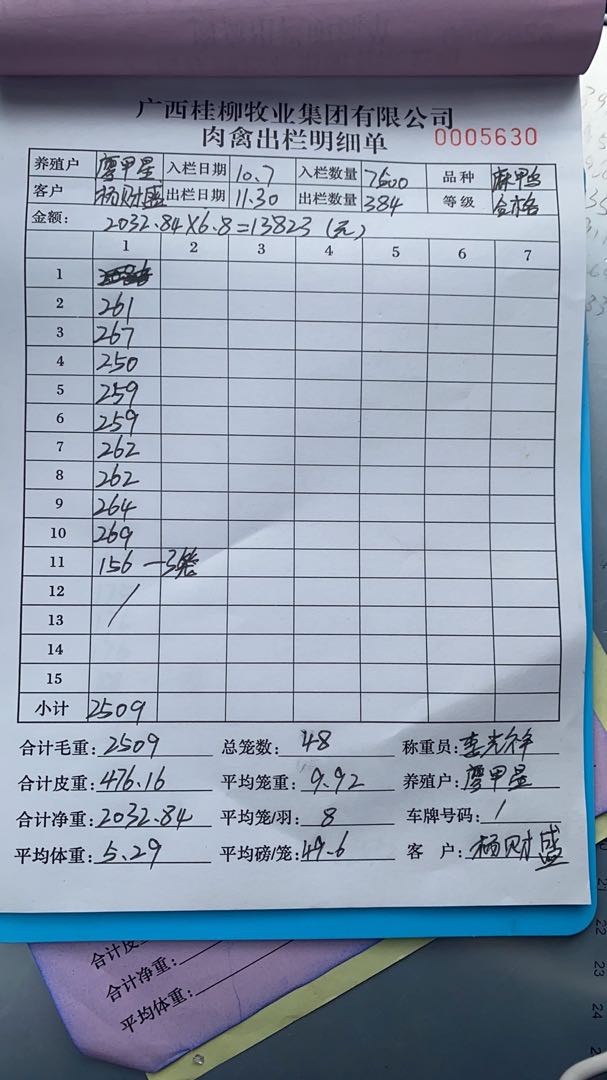 广西桂柳牧业集团有限公司
肉禽出栏明细单 0005630
养殖户 廖甲星 入栏日期 10.7 入栏数量 7600 品种 麻鸭
客户 杨财盛 出栏日期 11.30 出栏数量 384 等级 合格
金额: 2032.84×6.8=13823(元)
1 2 3 4 5 6 7
1
2 261
3 267
4 250
5 259
6 259
7 262
8 262
9 264
10 269
11 156 一3笼
12
13
14
15
小计 2509
合计毛重: 2509 总笼数: 48 称重员: 李光祥
合计皮重: 476.16 平均笼重: 9.92 养殖户: 廖甲星
合计净重: 2032.84 平均笼/羽: 8 车牌号码: /
平均体重: 5.29 平均磅/笼: 49.6 客户: 杨财盛
合计皮
合计净重:
平均体重:
22
23
24